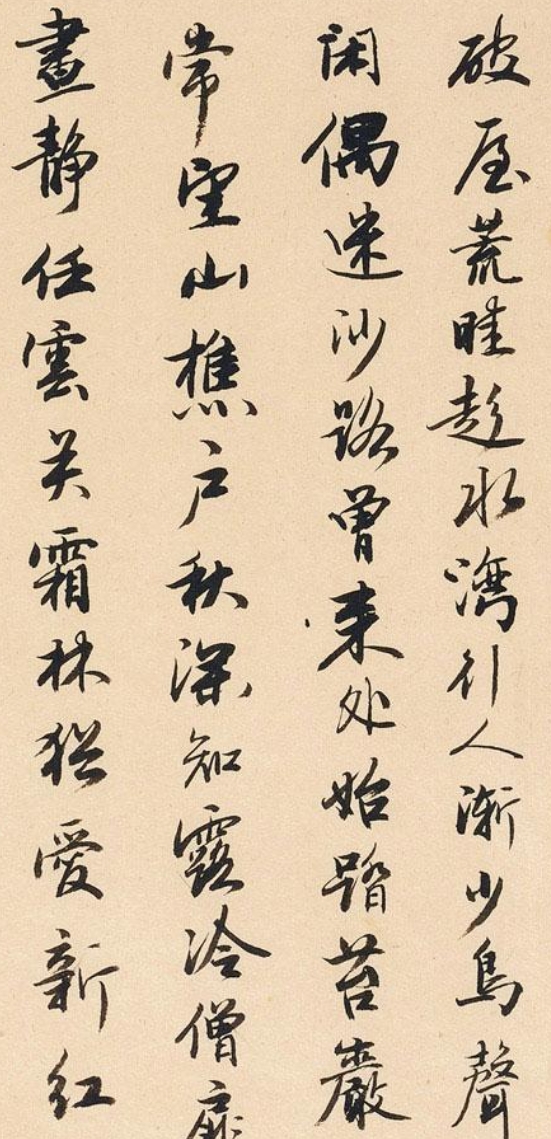 破屋荒畦趁水湾引人渐少鳥聲
闲偶迷沙路曾来处始踏苔巖
常望山樵户秋深知露冷僧扉
晝静任雲关霜林猶愛新红